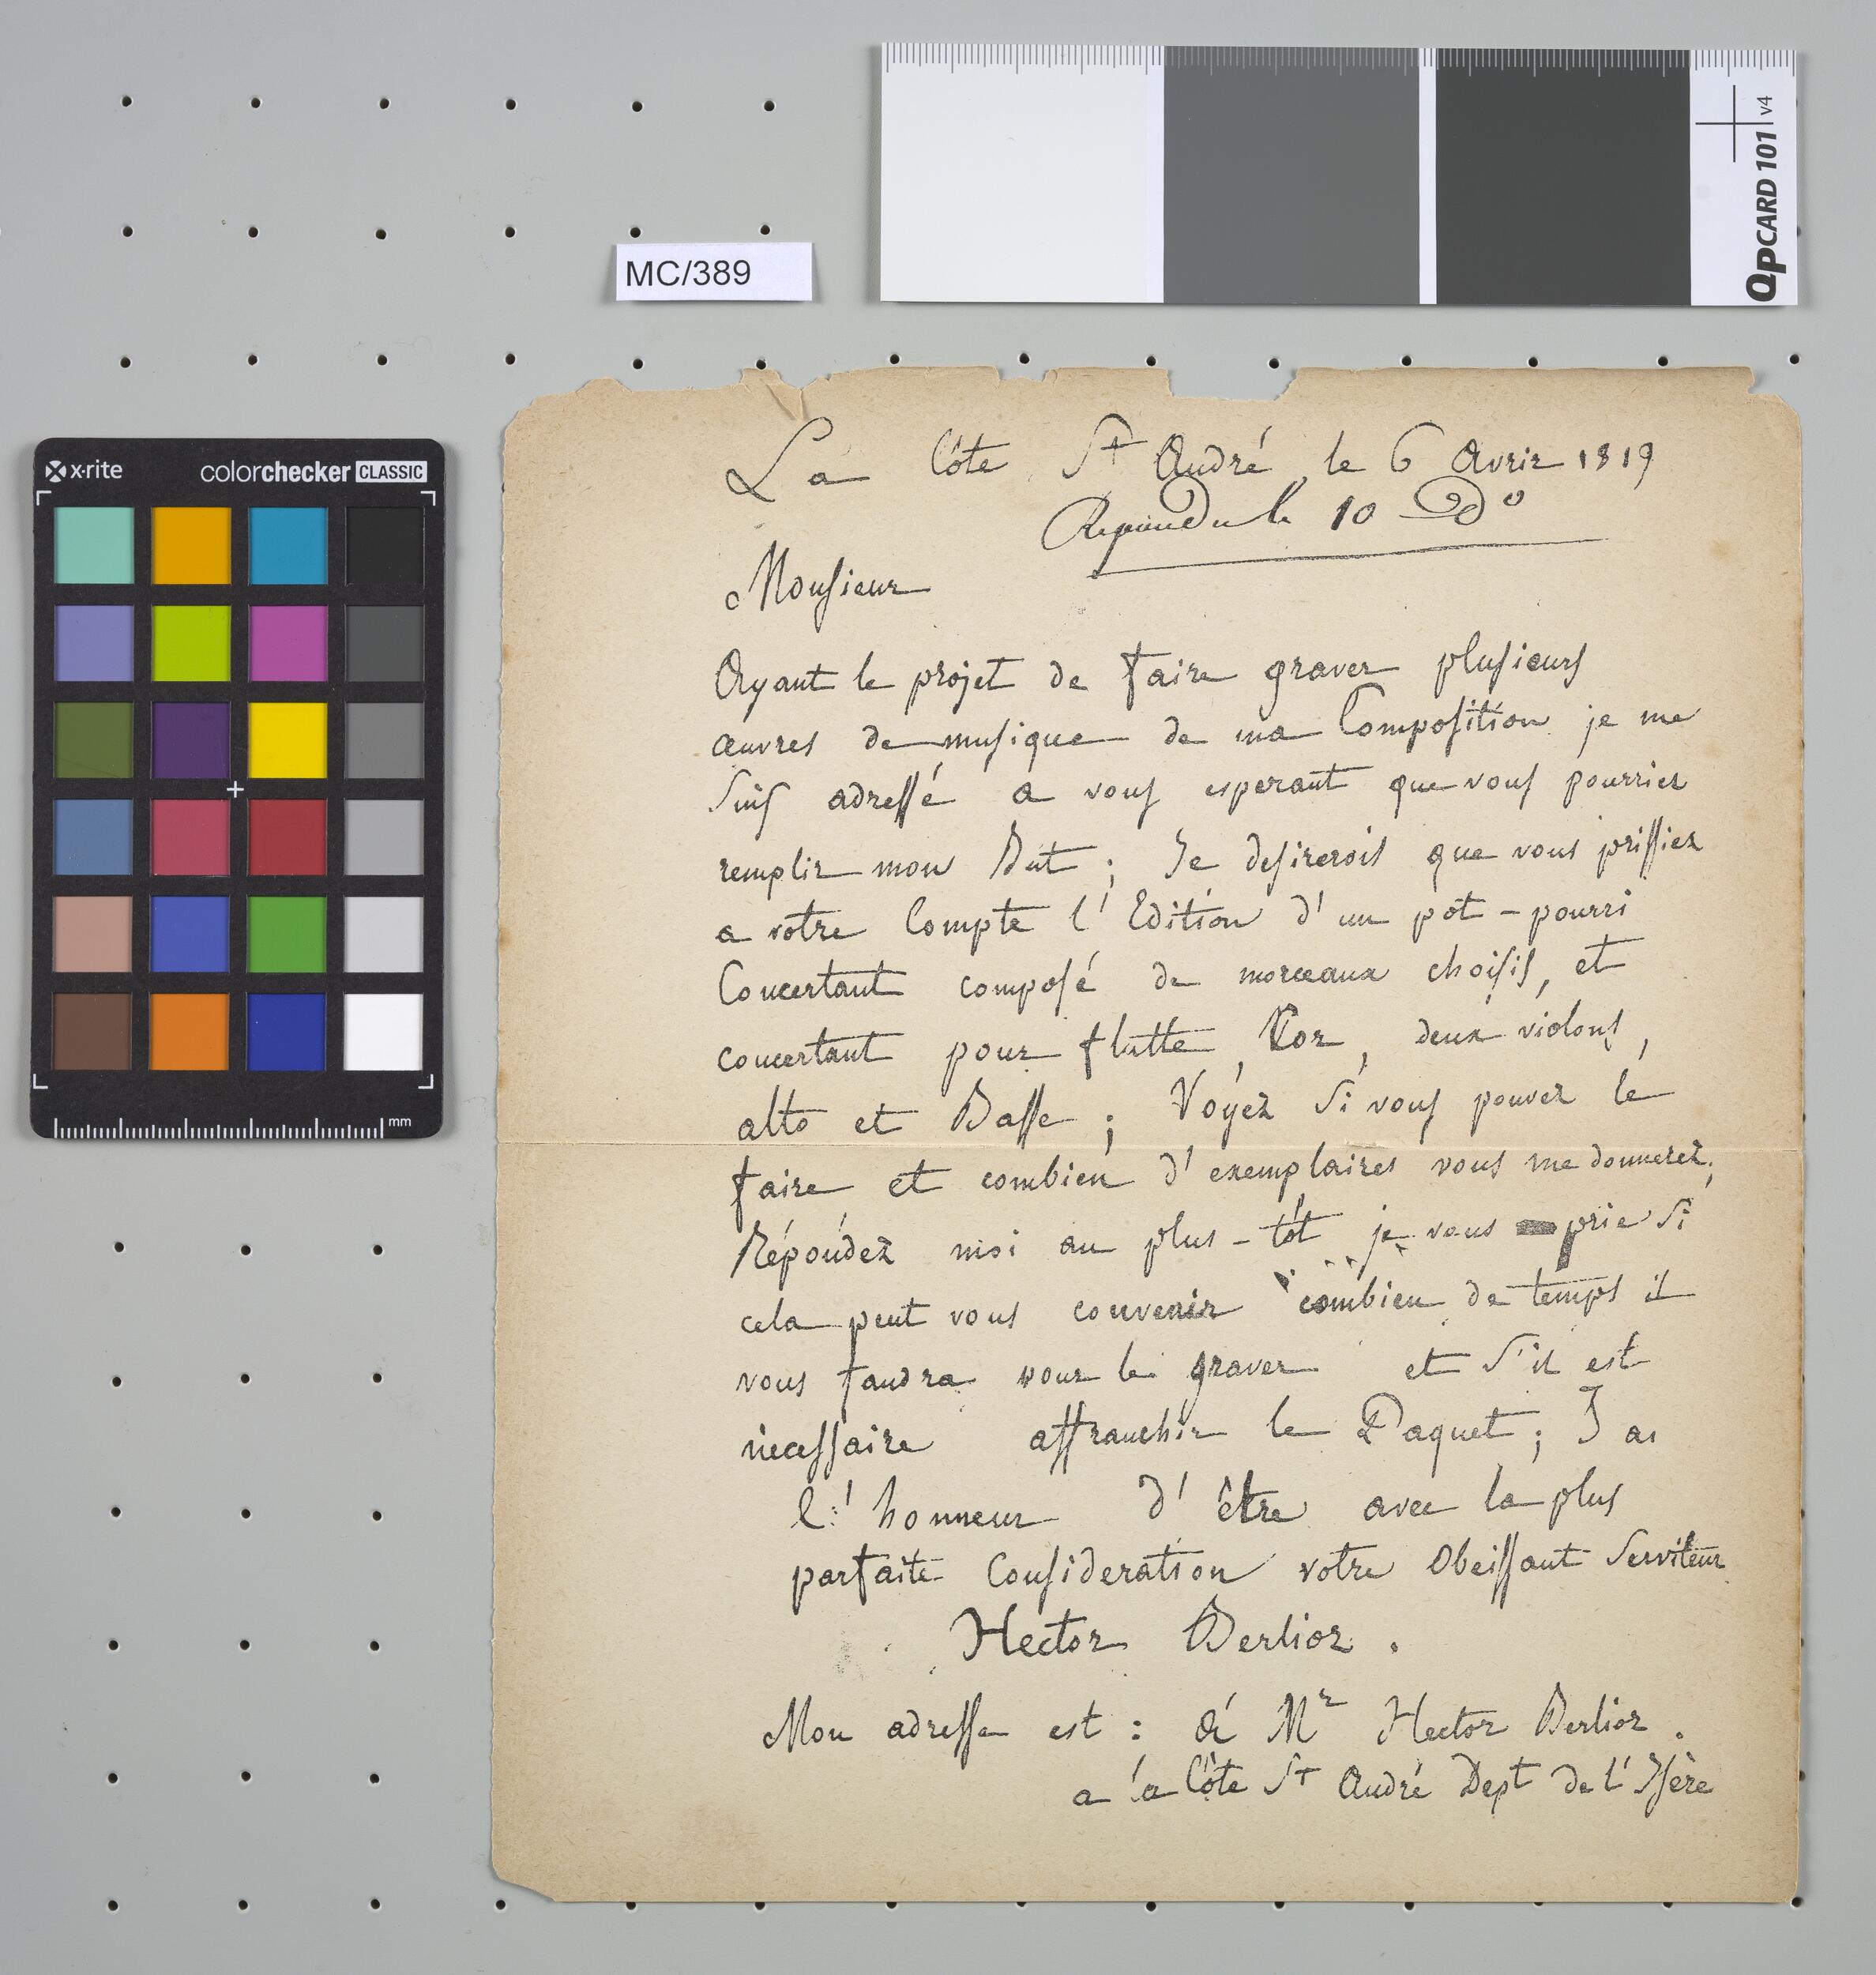 QPCARD 101 v4
MC/389
x-rite colorchecker CLASSIC
mm
La Côte St André, le 6 Avrir 1819
Repondu le 10 Do
Monsieur
Ayant le projet de faire graver plusieurs
œuvres de musique de ma Composition je me
suis adressé a vous esperant que vous pourriez
remplir mon But ; Je desirerois que vous prissiez
a votre Compte l'Edition d'un pot-pourri
Concertant composé de morceaux choisis, et
concertant pour flutte, Cor, deux violons,
alto et Basse ; Voyez si vous pouvez le
faire et combien d'exemplaires vous me donnerez,
Répondez moi au plus-tôt je vous prie si
cela peut vous convenir combien de temps il
vous faudra pour le graver et s'il est
necessaire affranchir le Paquet ; J ai
l'honneur d'être avec la plus
parfaite Consideration votre Obeissant serviteur
Hector Berlioz.
Mon adresse est : à Mr Hector Berlioz.
a la Côte St André Dept de l'Isère